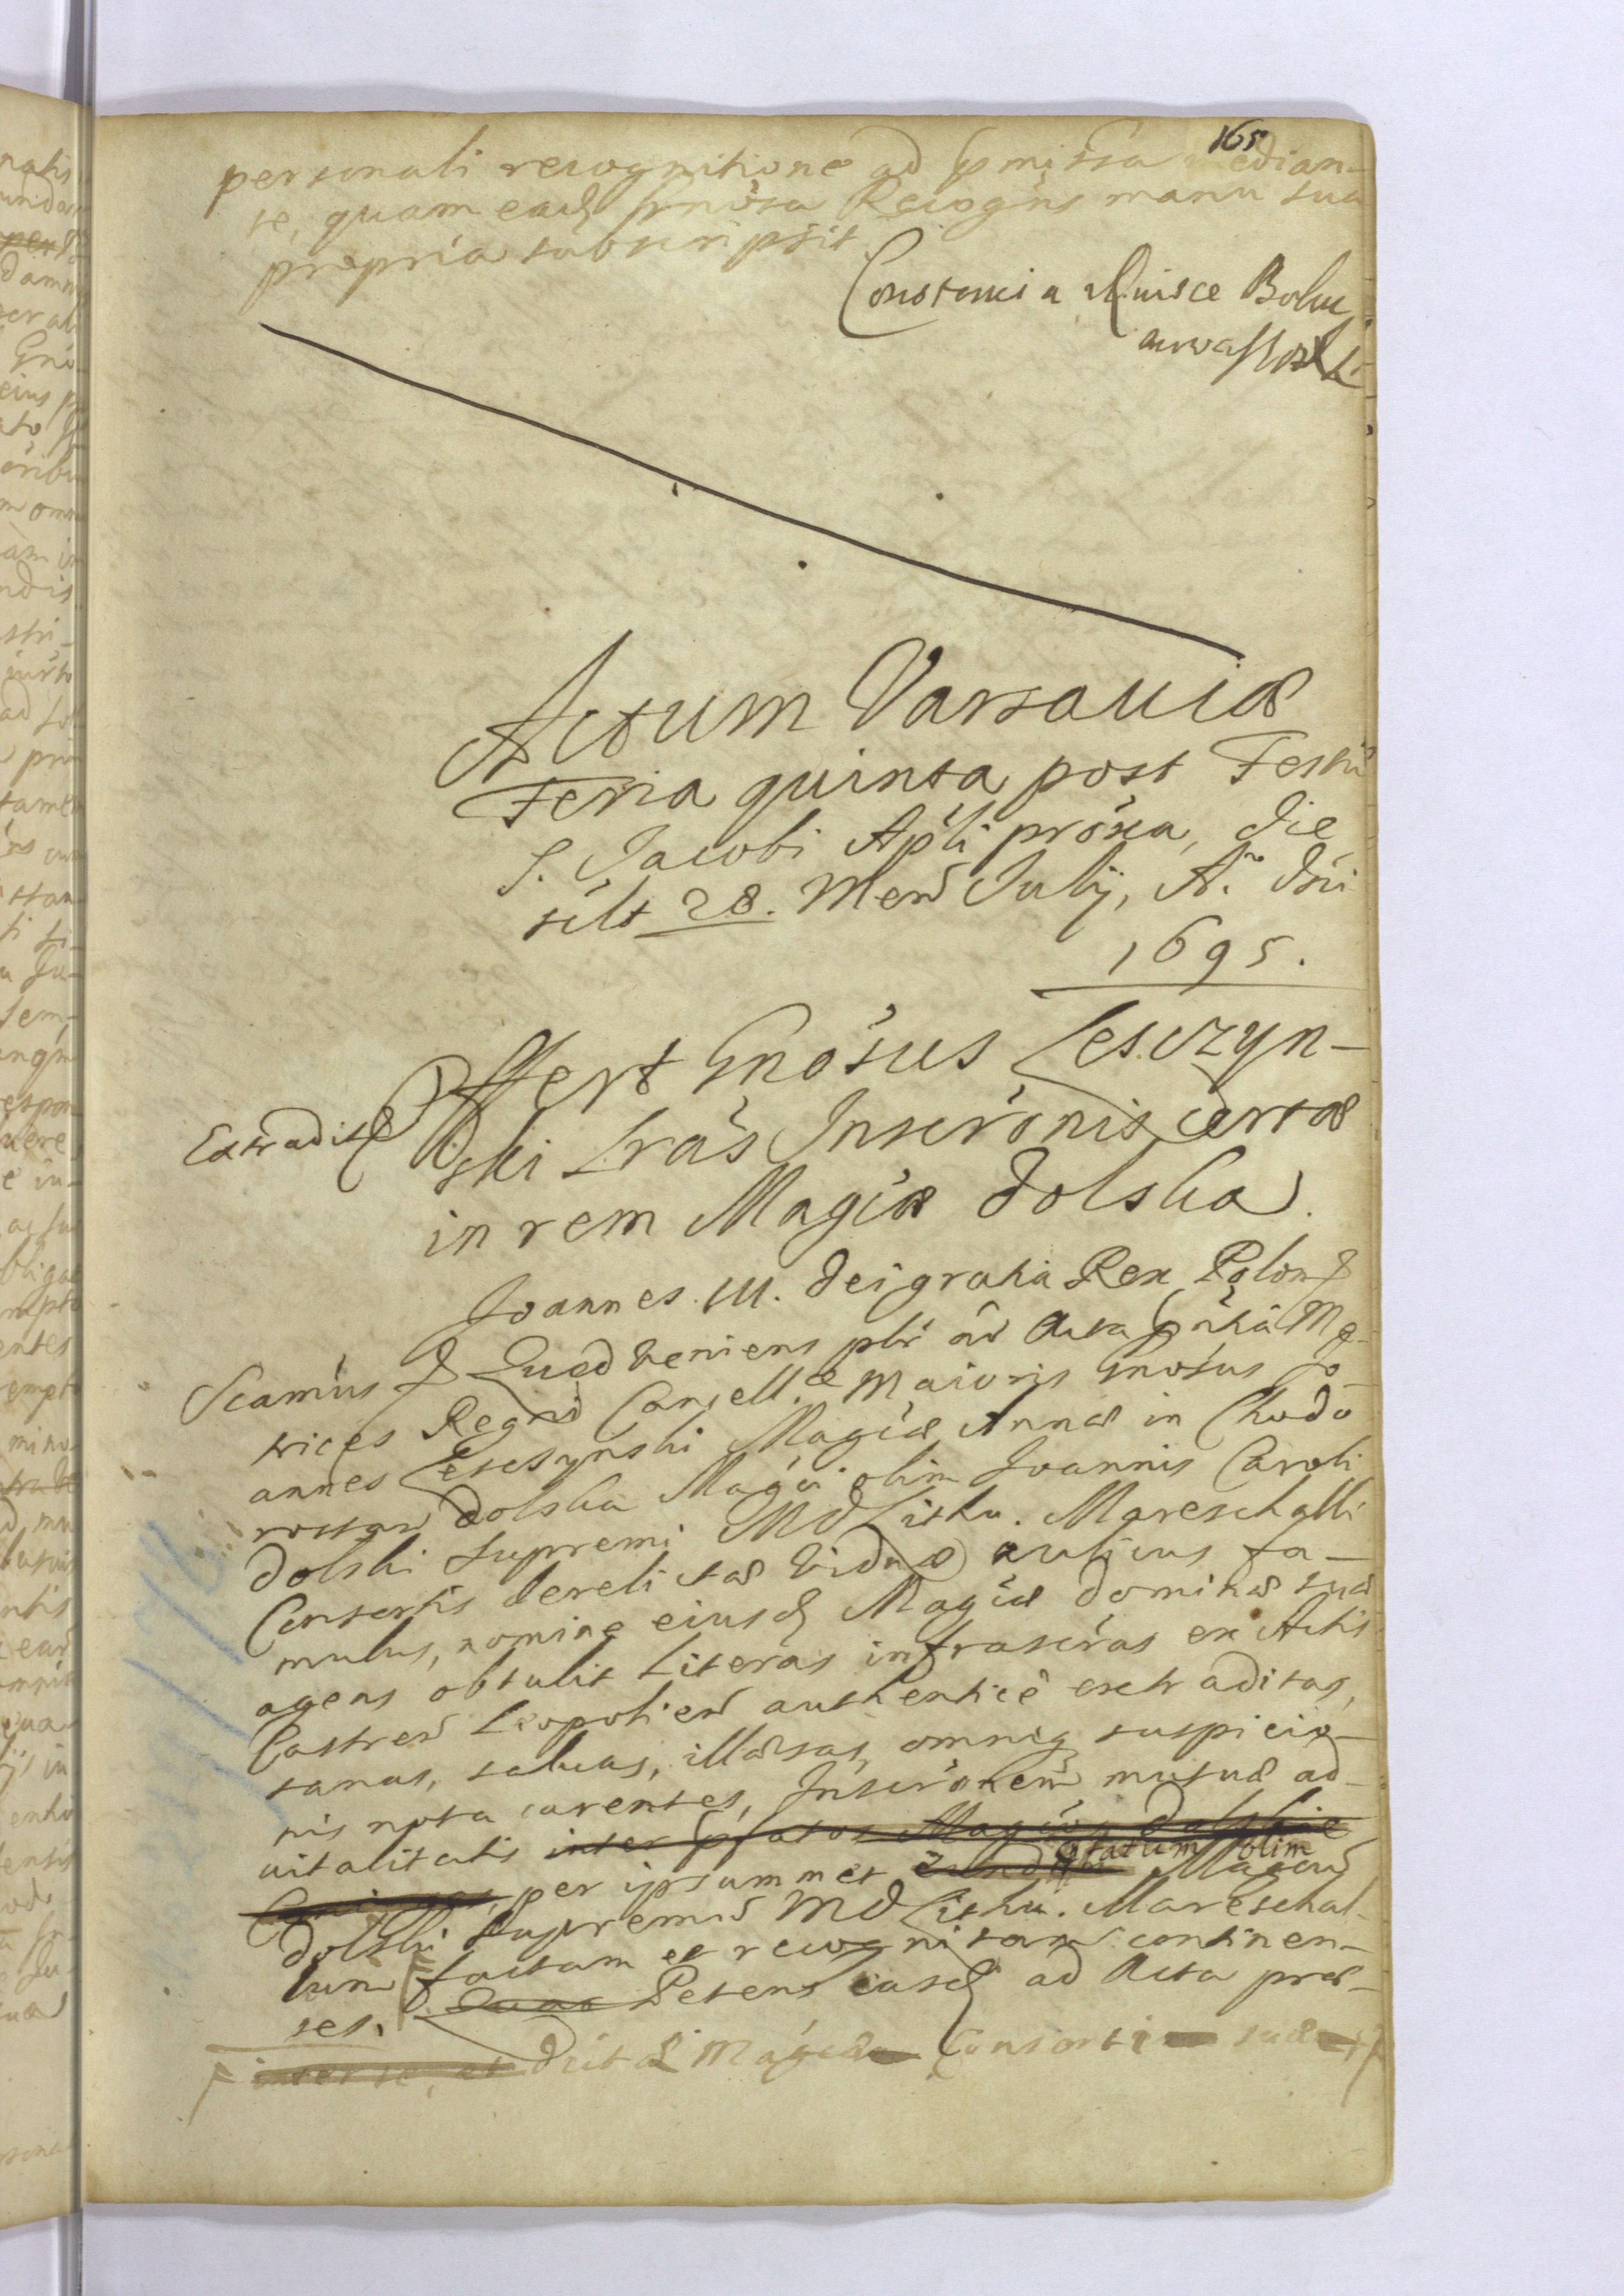 165
personali recognitione ad pmissa median-
te, quam eadē gnosa Recogns manu sua
propria subscripsit.
Constancia
Actum Varsauiæ
Feria quinta post Festū
S. Jacobi Apli proxa, die
sclt 28. Mens Julij, Aº Dni
1695.
Offert Gnosus Lesczyn-
Extradit
ski Lras Inscronis certæ
in rem Magcæ Dolska.
Joannes III. Dei gratia Rex Polon &
Scamus & Quod veniens plr ad Acta pntia Me-
trices Regni Cancell. Maioris Gnosus Jo-
annes Lesczynski Magcæ Annæ in Chodo
rostaw Dolska Magci olim Joannis Caroli
Dolski Supremi MDLithu. Mareschalli
Consortis derelictæ Viduæ aulicus fa-
mulus, nomine eiusd Magcæ Dominæ suæ
agens obtulit Literas infrascras ex Actis
Castren Leopolien authenticè extraditas,
sanas, saluas, illæsas, omniq suspicio-
nis nota carentes, Inscronem mutuæ ad-
uitalitatis inter pfatos Magcos Dolskie
per ipsummet olim Magcu
Dolski Supremu MDLithu. Mareschal-
lum factam et recognitam continen-
tes. Petens easd ad Acta præ-
inter se, et dictæ Magcæ Consorti suæ